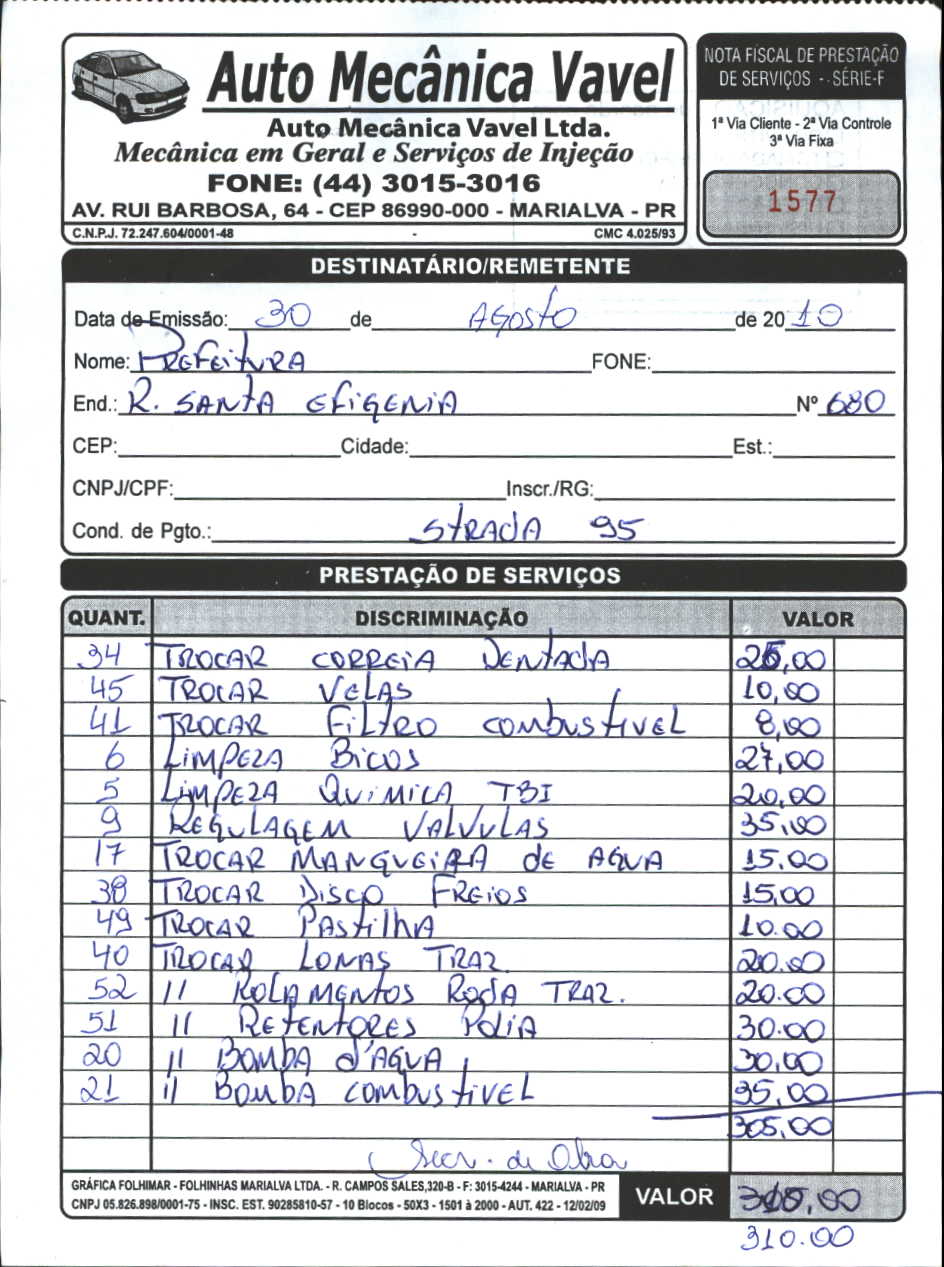 Auto Mecânica Vavel
Auto Mecânica Vavel Ltda.
Mecânica em Geral e Serviços de Injeção
FONE: (44) 3015-3016
AV. RUI BARBOSA, 64 - CEP 86990-000 - MARIALVA - PR
C.N.P.J. 72.247.604/0001-48 CMC 4.025/93
NOTA FISCAL DE PRESTAÇÃO
DE SERVIÇOS - - SÉRIE-F
1ª Via Cliente - 2ª Via Controle
3ª Via Fixa
1577
DESTINATÁRIO/REMETENTE
Data de Emissão: 30 de AGOSTO de 2010
Nome: PREFEITURA FONE:
End.: R. SANTA EFIGENIA Nº 680
CEP: Cidade: Est.:
CNPJ/CPF: Inscr./RG:
Cond. de Pgto.: STRADA 95
PRESTAÇÃO DE SERVIÇOS
QUANT. DISCRIMINAÇÃO VALOR
34 TROCAR CORREIA DENTADA 25,00
45 TROCAR VELAS 10,00
41 TROCAR FILTRO COMBUSTIVEL 8,00
6 LIMPEZA BICOS 27,00
5 LIMPEZA QUIMICA TBI 20,00
9 REGULAGEM VALVULAS 35,00
17 TROCAR MANGUEIRA DE AGUA 15.00
38 TROCAR DISCO FREIOS 15,00
49 TROCAR PASTILHA 10.00
40 TROCAR LONAS TRAZ. 20.00
52 11 ROLAMENTOS RODA TRAZ. 20.00
51 11 RETENTORES POLIA 30.00
20 11 BOMBA D'AGUA 30,00
21 11 BOMBA COMBUSTIVEL 35,00
305,00
Secr. de Obra
GRÁFICA FOLHIMAR - FOLHINHAS MARIALVA LTDA. - R. CAMPOS SALES,320-B - F: 3015-4244 - MARIALVA - PR
CNPJ 05.826.898/0001-75 - INSC. EST. 90285810-57 - 10 Blocos - 50X3 - 1501 à 2000 - AUT. 422 - 12/02/09
VALOR
310.00